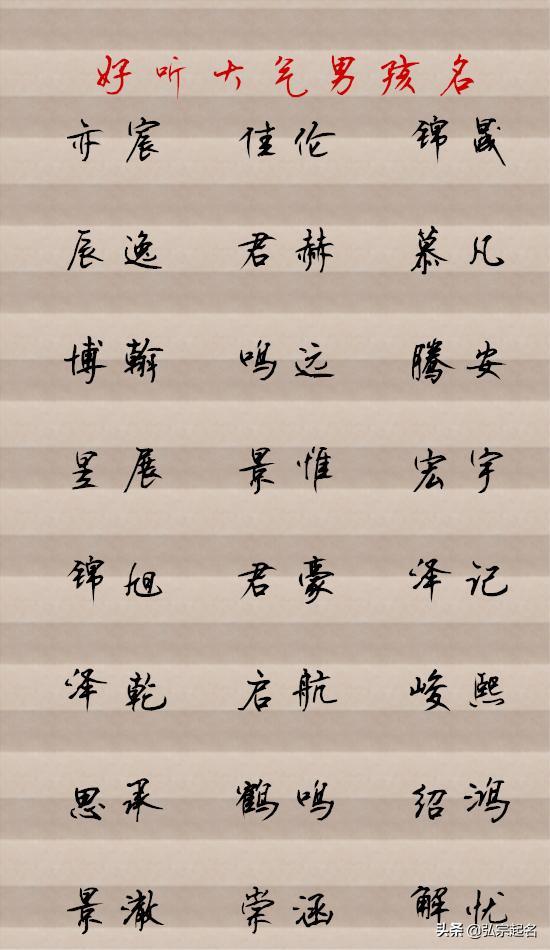 好听大气男孩名
亦宸 佳伦 锦晟
辰逸 君赫 慕凡
博翰 鸣远 腾安
昱展 景惟 宏宇
锦旭 君豪 泽记
泽乾 启航 峻熙
思承 鹤鸣 绍鸿
景澈 崇涵 解忧
头条 @弘宗起名